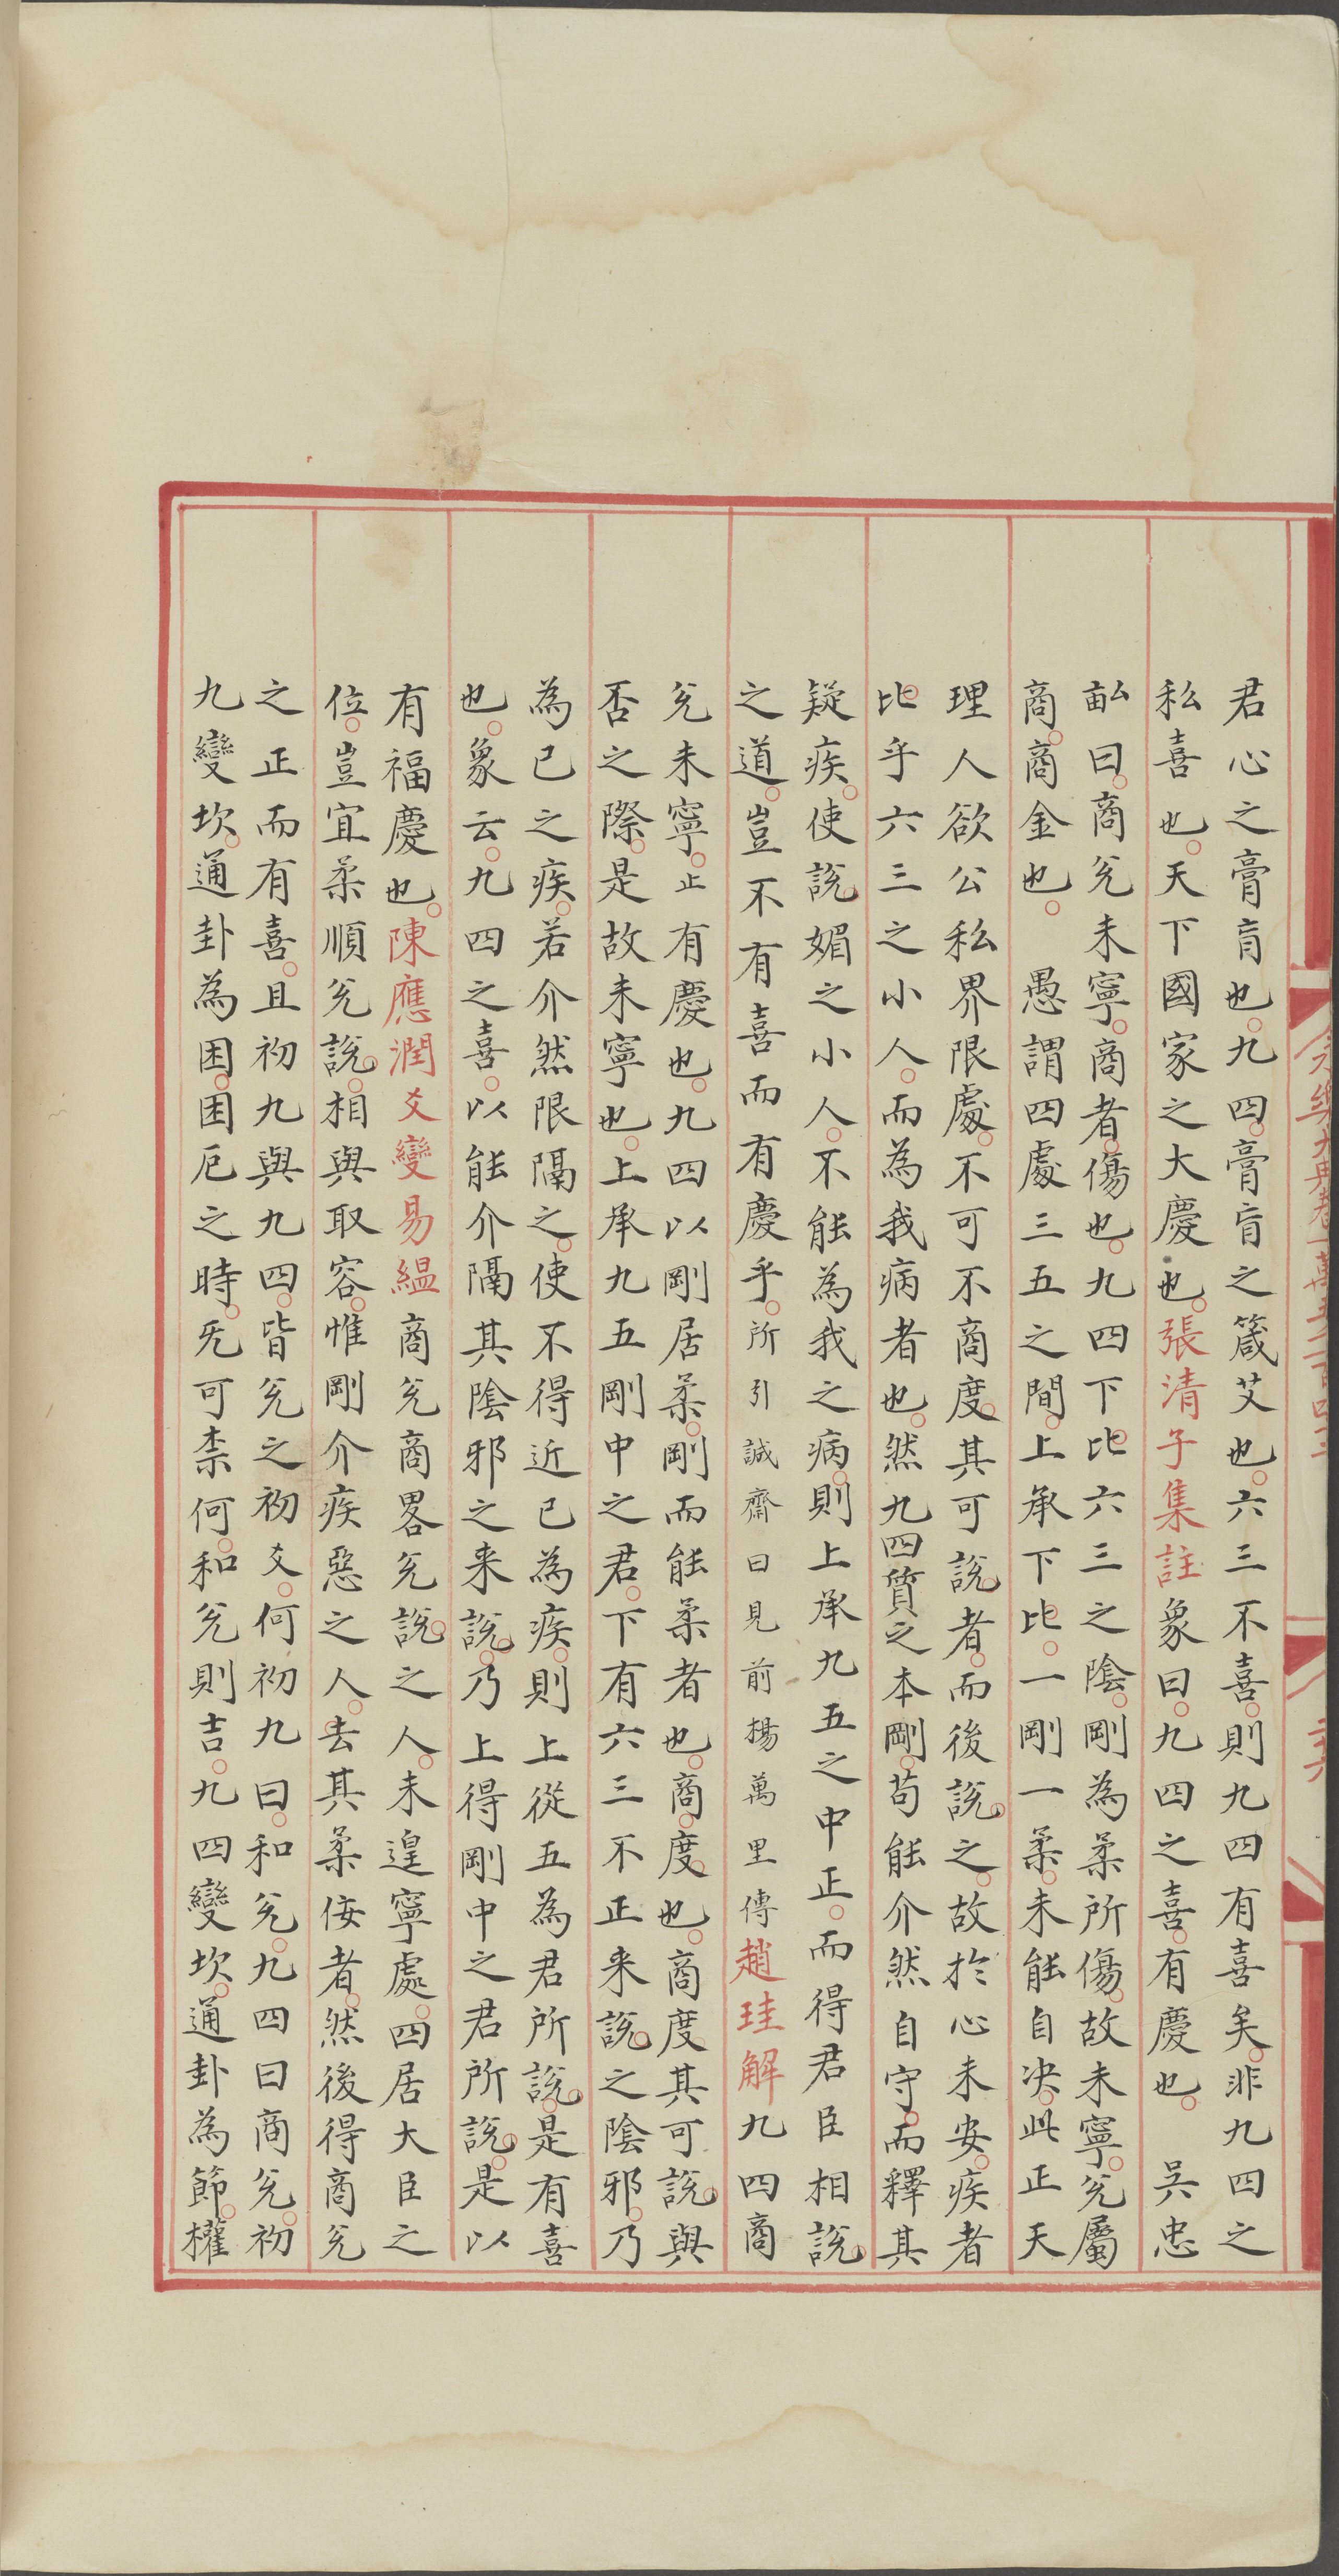 永樂大典卷一萬五千一百四十二
二六
君心之膏肓也九四膏肓之箴艾也六三不喜則九四有喜矣非九四之
私喜也天下國家之大慶也張清子集註象曰九四之喜有慶也　吳忠
畝曰商兊未寧商者傷也九四下比六三之陰剛為柔所傷故未寧兊屬
商商金也　愚謂四處三五之間上承下比一剛一柔未能自决此正天
理人欲公私界限處不可不商度其可說者而後說之故於心未安疾者
比乎六三之小人而為我病者也然九四質之本剛苟能介然自守而釋其
疑疾使說媚之小人不能為我之病則上承九五之中正而得君臣相說
之道豈不有喜而有慶乎所引誠齋曰見前楊萬里傳趙珪解九四商
兊未寧止有慶也九四以剛居柔剛而能柔者也商度也商度其可說與
否之際是故未寧也上承九五剛中之君下有六三不正来說之陰邪乃
為已之疾若介然限隔之使不得近已為疾則上從五為君所說是有喜
也象云九四之喜以能介隔其陰邪之来說乃上得剛中之君所說是以
有福慶也陳應潤爻變易緼商兊商畧兊說之人未遑寧處四居大臣之
位豈宜柔順兊說相與取容惟剛介疾惡之人去其柔侫者然後得商兊
之正而有喜且初九與九四皆兊之初爻何初九曰和兊九四曰商兊初
九變坎通卦為困困戹之時旡可柰何和兊則吉九四變坎通卦為節權